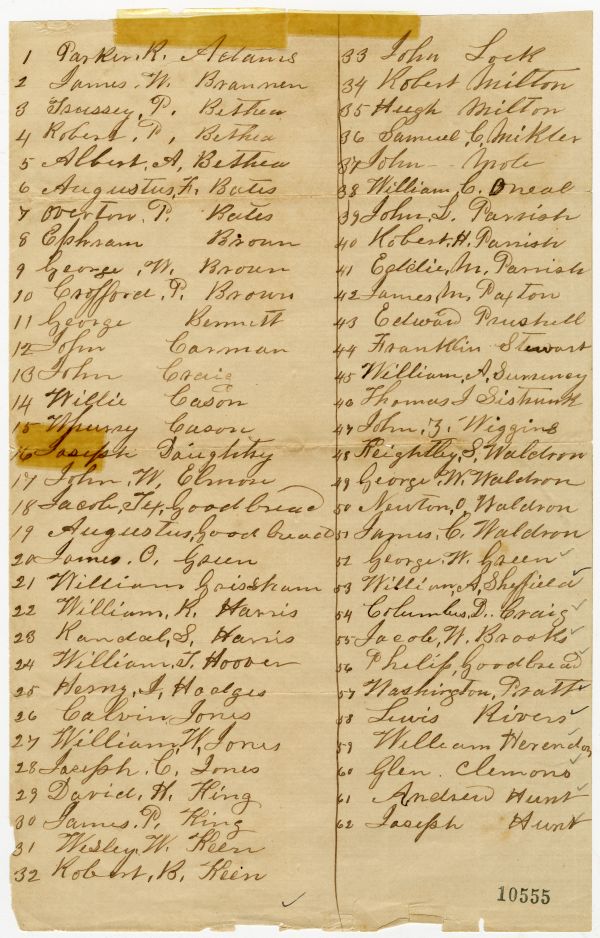 1 Parker, R. Adams
2 James, W. Brannen
3 Trussey, P. Bethea
4 Robert, P, Bethea
5 Albert, A, Bethea
6 Augustus, F. Bates
7 Overton, P. Bates
8 Ephram Broun
9 George, W. Broun
10 Crofford, P. Brown
11 George Bennett
12 John Carman
13 John Craig
14 Willie Cason
15 Cason
16 Joseph Daughty
17 John, W, Elmore
18 Jacob, Goodbread
19 Augustus, Goodbread
20 James. O. Green
21 William Grissham
22 William, R. Harris
23 Randal, S, Harris
24 William, T. Hoover
25 Henry, I, Hodges
26 Calvin Jones
27 William, W, Jones
28 Joseph. C. Jones
29 David, H. King
30 James. P. King
31 Wesley, W. Keen
32 Robert, B. Keen
33 John Lock
34 Robert Milton
35 Hugh Milton
36 Samuel, C, Mikler
37 John
38 William, C. Oneal
39 John, L. Parrish
40 Robert, H. Parrish
41 Eddie, M. Parrish
42 James, M. Paxton
43 Edward Prushell
44 Franklin Stewart
45 William, A, Summey
46 Thomas J Sistrunk
47 John, Z, Wiggins
48 Keightley, S, Waldron
49 George, W. Waldron
50 Newton, O, Waldron
51 James, C. Waldron
52 George, W. Green
53 William, A, Sheffield
54 Columbus, D. Craig
55 Jacob, W. Brooks
56 Philip, Goodbread
57 Washington, Pratt
58 Lewis Rivers
59 William Herendon
60 Glen. Clemons
61 Andrew Hunt
62 Joseph Hunt
10555